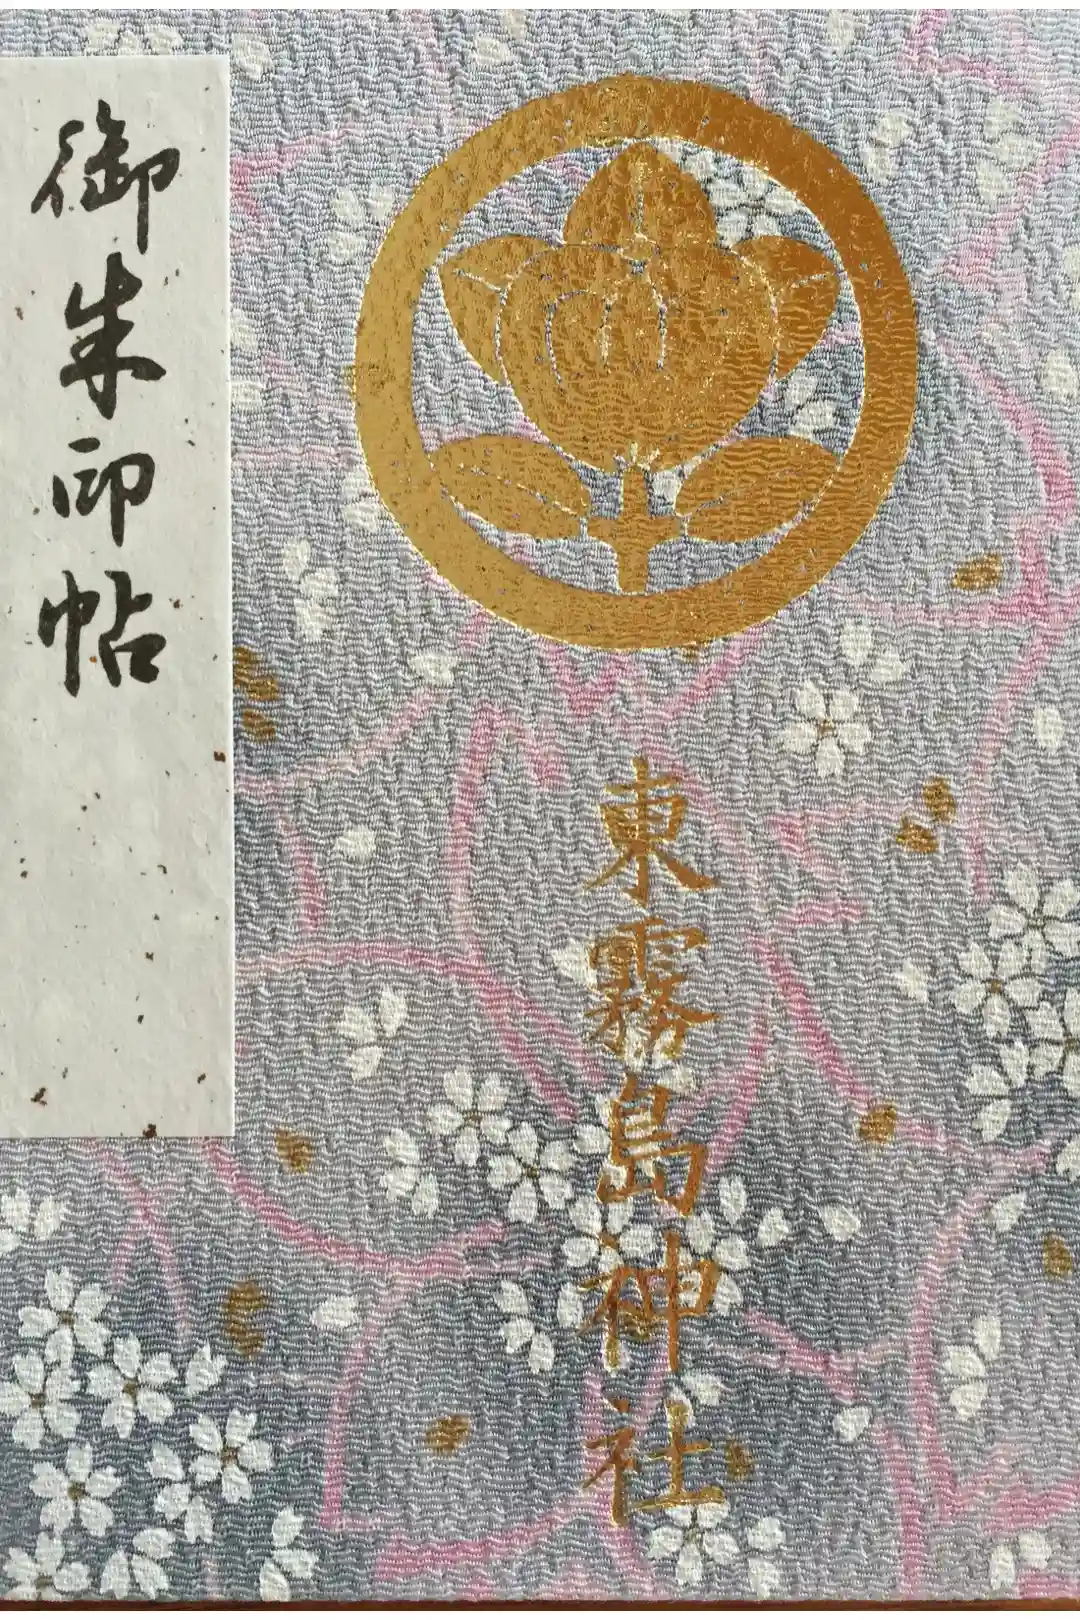 東霧島神社
御朱印帖